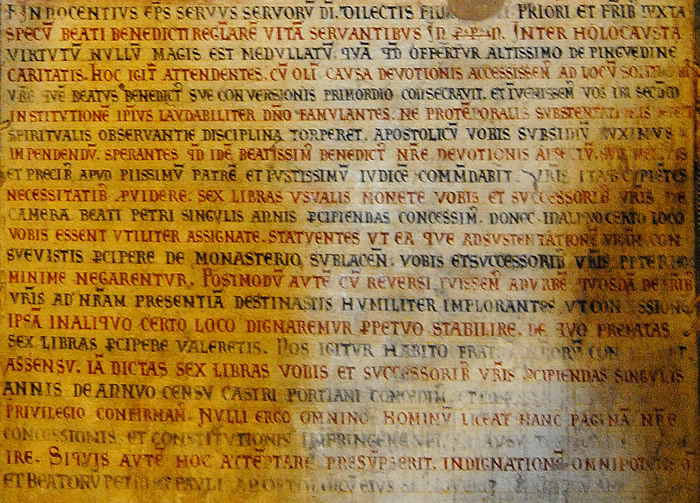 INNOCENTIVS EP̄S SERVVS SERVORV̄ DI. DILECTIS PRIORI ET FRIB IVXTA
SPECV̄ BEATI BENEDICTI REGLARĒ VITĀ SERVANTIBVS IN INTER HOLOCAVSTA
VIRTVTV̄ NVLLV̄ MAGIS EST MEDVLLATV̄. QVĀ QD OFFERTVR ALTISSIMO DE PINGVEDINE
CARITATIS. HOC IGIT ATTENDENTES. CV̄ OLI CAVSA DEVOTIONIS ACCESSISSEM̄ AD LOCV̄
BEATVS BENEDICT SVE CONVERSIONIS PRIMORDIO CONSECRAVIT. ET INVENISSEM̄ VOS IBI SECVD
INSTITVTIONĒ IPIVS LAVDABILITER DN̄O FAMVLANTES. NE PRO TĒPORALIS SVBSTENTATIONIS
SPIRITVALIS OBSERVANTIE DISCIPLINA TORPERET. APOSTOLICV̄ VOBIS SVBSIDIV̄
IMPENDENDV̄. SPERANTES QD IDĒ BEATISSIM BENEDICT NR̄E DEVOTIONIS
ET PRECIB APVD PIISSIMV̄ PATRĒ ET IVSTISSIMV̄ IVDICĒ COMM̄DABIT. VR̄IS ITAQ
NECESSITATIB PVIDERE. SEX LIBRAS VSVALIS MONETE VOBIS ET SVCCESSORIB VR̄IS DE
CAMERA BEATI PETRI SINGVLIS ANNIS PCIPIENDAS CONCESSIM̄. DONEC IN ALIQVO CERTO LOCO
VOBIS ESSENT VTILITER ASSIGNATE. STATVENTES VT EA QVE AD SVSTENTATIONĒ VRAM CON
SVEVISTIS PCIPERE DE MONASTERIO SVBLACEN̄. VOBIS ET SVCCESSORIB VR̄IS PPTER HOC
MINIME NEGARENTVR. POSTMODV̄ AVTĒ CV̄ REVERSI FVISSEM̄ AD VRBĒ QVOSDĀ DE FRIB
VR̄IS AD NR̄AM PRESENTIĀ DESTINASTIS HVMILITER IMPLORANTES. VT CONCESSIONĒ
IPSĀ IN ALIQVO CERTO LOCO DIGNAREMVR PPETVO STABILIRE. DE QVO PREFATAS
SEX LIBRAS PCIPERE VALERETIS. NOS IGITVR HABITO
ASSENSV. IĀ DICTAS SEX LIBRAS VOBIS ET SVCCESSORIB VR̄IS PCIPIENDAS SINGVLIS
ANNIS DE ANNVO CENSV CASTRI PORTIANI
PRIVILEGIO CONFIRMAM̄. NVLLI ERGO OMNINO HOMINV̄ LICEAT HANC PAGINĀ NR̄E
CONCESSIONIS ET CONSTITVTIONIS INFRINGERE
IRE. SIQVIS AVTĒ HOC ATTĒPTARE PRESV̄PSERIT. INDIGNATIONĒ OMNIPOTENTIS
ET BEATORV̄ PETRI ET PAVLI APOSTOLORV̄ EIVS